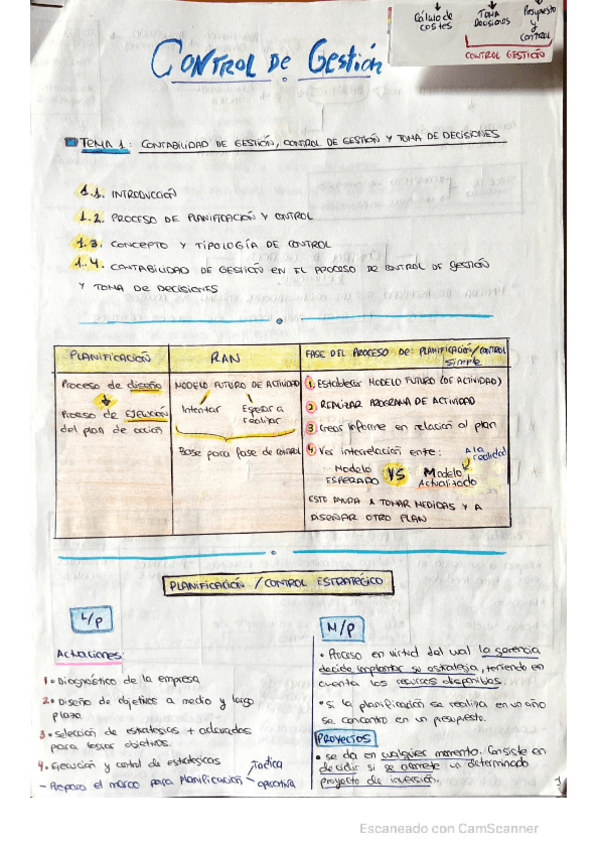 Cálculo de costes
Toma Decisiones
Presupuesto y CONTROL
CONTROL GESTIÓN
CONTROL DE GESTIÓN
TEMA 1: CONTABILIDAD DE GESTIÓN, CONTROL DE GESTIÓN Y TOMA DE DECISIONES
1.1. INTRODUCCIÓN
1.2. PROCESO DE PLANIFICACIÓN Y CONTROL
1.3. CONCEPTO Y TIPOLOGÍA DE CONTROL
1.4. CONTABILIDAD DE GESTIÓN EN EL PROCESO DE CONTROL DE GESTIÓN
Y TOMA DE DECISIONES
PLANIFICACIÓN
Proceso de diseño
Proceso de EJECUCIÓN
del plan de acción
MODELO FUTURO DE ACTIVIDAD
Intentar
Esperar a realizar
Base para fase de control
FASE DEL PROCESO DE: PLANIFICACIÓN/CONTROL
simple
1. Establecer MODELO FUTURO (DE ACTIVIDAD)
2 REALIZAR PROGRAMA DE ACTIVIDAD
3 Crear informe en relación al plan
4. Ver interrelación entre:
A la realidad
Modelo ESPERADO VS Modelo Actualizado
ESTO AYUDA A TOMAR MEDIDAS Y A
DISEÑAR OTRO PLAN
PLANIFICACIÓN / CONTROL ESTRATÉGICO
L/P
Actuaciones:
1 • Diagnóstico de la empresa
2 • Diseño de objetivos a medio y largo
plazo
3 • Selección de estrategias + adecuadas
para lograr objetivos.
4 • Ejecución y control de estrategias
- Prepara el marco para planificación
Táctica
operativa
M/P
• Proceso en virtud del cual la gerencia
decide implantar su estrategia, teniendo en
cuenta los recursos disponibles.
• Si la planificación se realiza en un año
se concentra en un presupuesto.
PROYECTOS
• se da en cualquier momento. Consiste en
decidir si se acomete un determinado
proyecto de inversión.
1
Escaneado con CamScanner